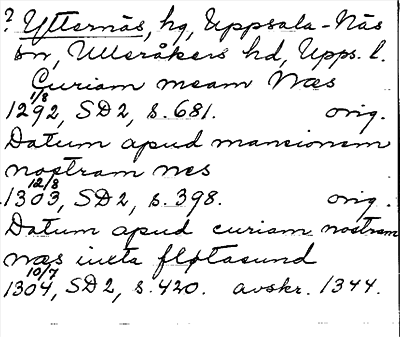 ? Ytternäs, hg, Uppsala-Näs
sn, Ulleråkers hd, Upps. l.
Curiam meam Næs
1/8
1292, SD2, s. 681. orig.
Datum apud mansionem
nostram nes
12/8
1303, SD2, s. 398. orig.
Datum apud curiam nostram
næs iuxta fløtasund
10/7
1304, SD2, s. 420. avskr. 1344.